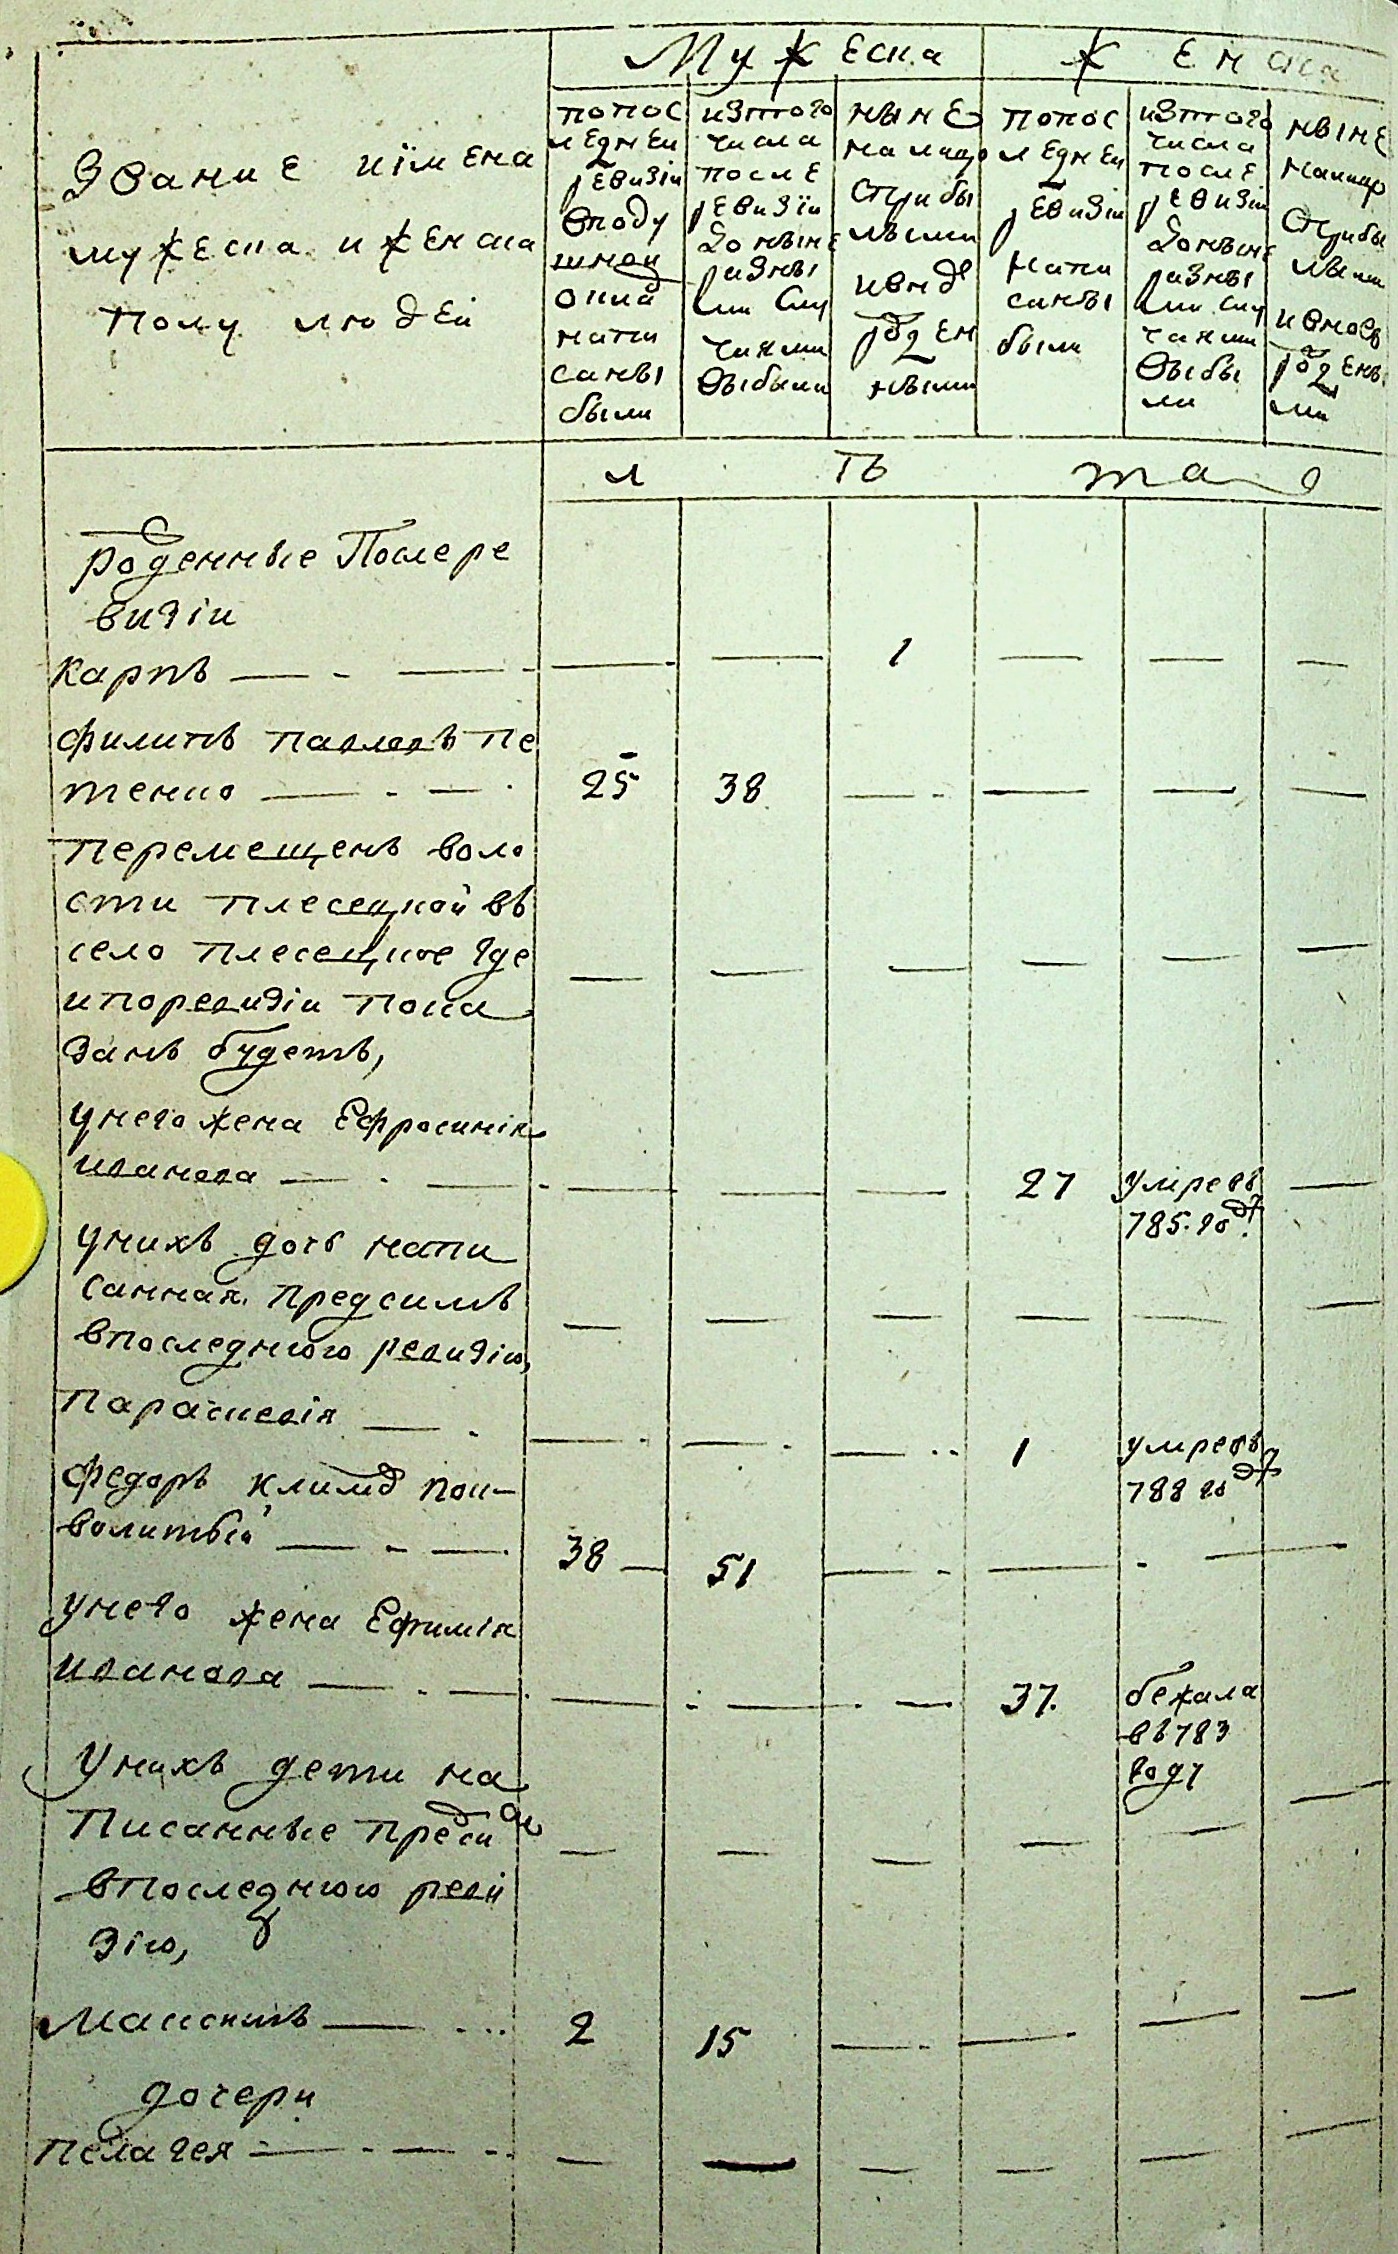 Мужеска
Женска
Звание иїмена
мужеска и женска
полу людей
попос
ледней
ревизіи
вподу
шной
оклад
напи
саны
были
изтого
числа
после
ревизїи
доныне
разны
ми слу
чаями
выбыли
ныне
налицо
сприбы
лыми
ивнов
рожден
ными
попос
ледней
ревизіи
напи
саны
были
изтого
числа
после
ревизіи
доныне
разны
ми слу
чаями
выбы
ли
ныне
налицо
сприбы
лыми
ивновь
рожденны
ми
лѣта
рожденные Послере
визіи
Карпъ — - — — — 1 — — —
филипъ павловъ пе
тенко — - — 25 38 — - — — —
перемещенъ воло
сти плесецкой въ
село плесецкое где
ипоревизіи пока
занъ будетъ,
унего жена Ефросинія
иванова — - — - — — — 27 умре въ —
785. году
унихъ дочь напи
санная предсимъ
впоследнюю ревизію,
параскевія — - — - — - — - - 1 умре въ
788 году
федоръ климов пои-
волитый — - — 38 — 51 — - — - —
унего жена Ефимія
иванова — - — - — - — - — 37. бежала
въ 783
году
унихъ дети на
писанные предсим
впоследнюю реви
зію,
Максимъ — 2 15 — - — — —
дочери
пелагея — - — - — — — — — —